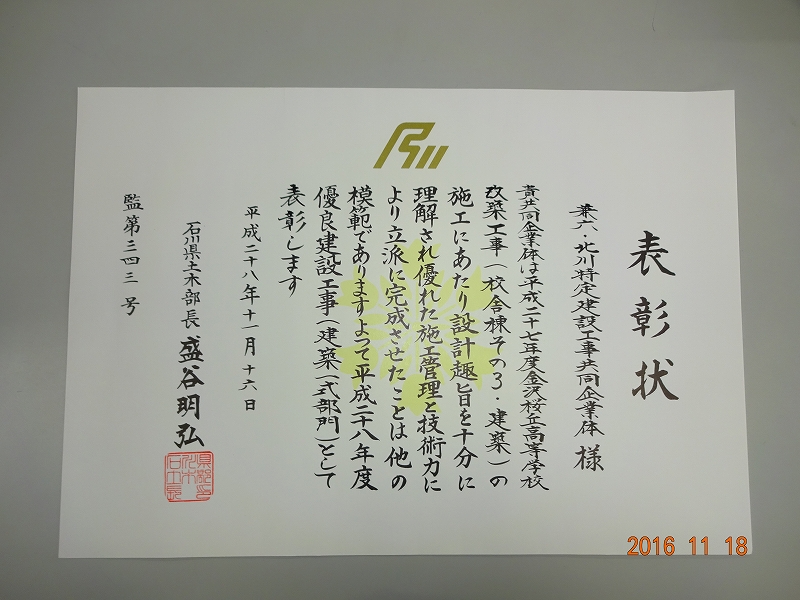 表彰状
兼六・北川特定建設工事共同企業体 様
貴共同企業体は平成二十七年度金沢桜丘高等学校
改築工事(校舎棟その3・建築)の
施工にあたり設計趣旨を十分に
理解され優れた施工管理と技術力に
より立派に完成させたことは他の
模範でありますよつて平成二十八年度
優良建設工事(建築一式部門)として
表彰します
平成二十八年十一月十六日
石川県土木部長 盛谷明弘
監第三四三号
2016 11 18